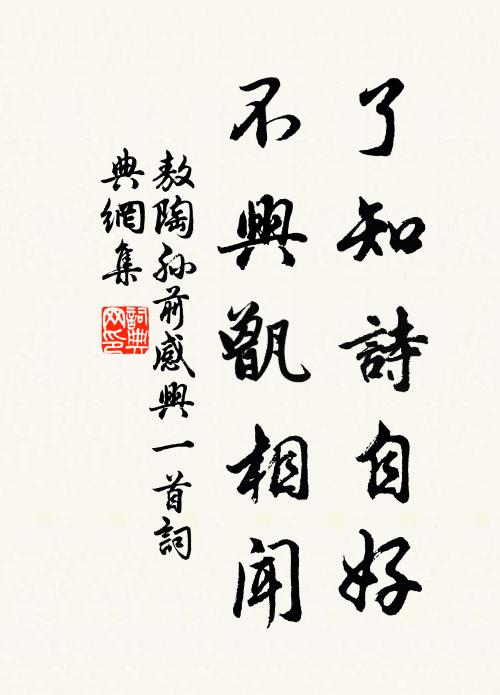 了知詩自好
不與甑相聞
敖陶孫前感興一首詞
典網集
詞典
网印